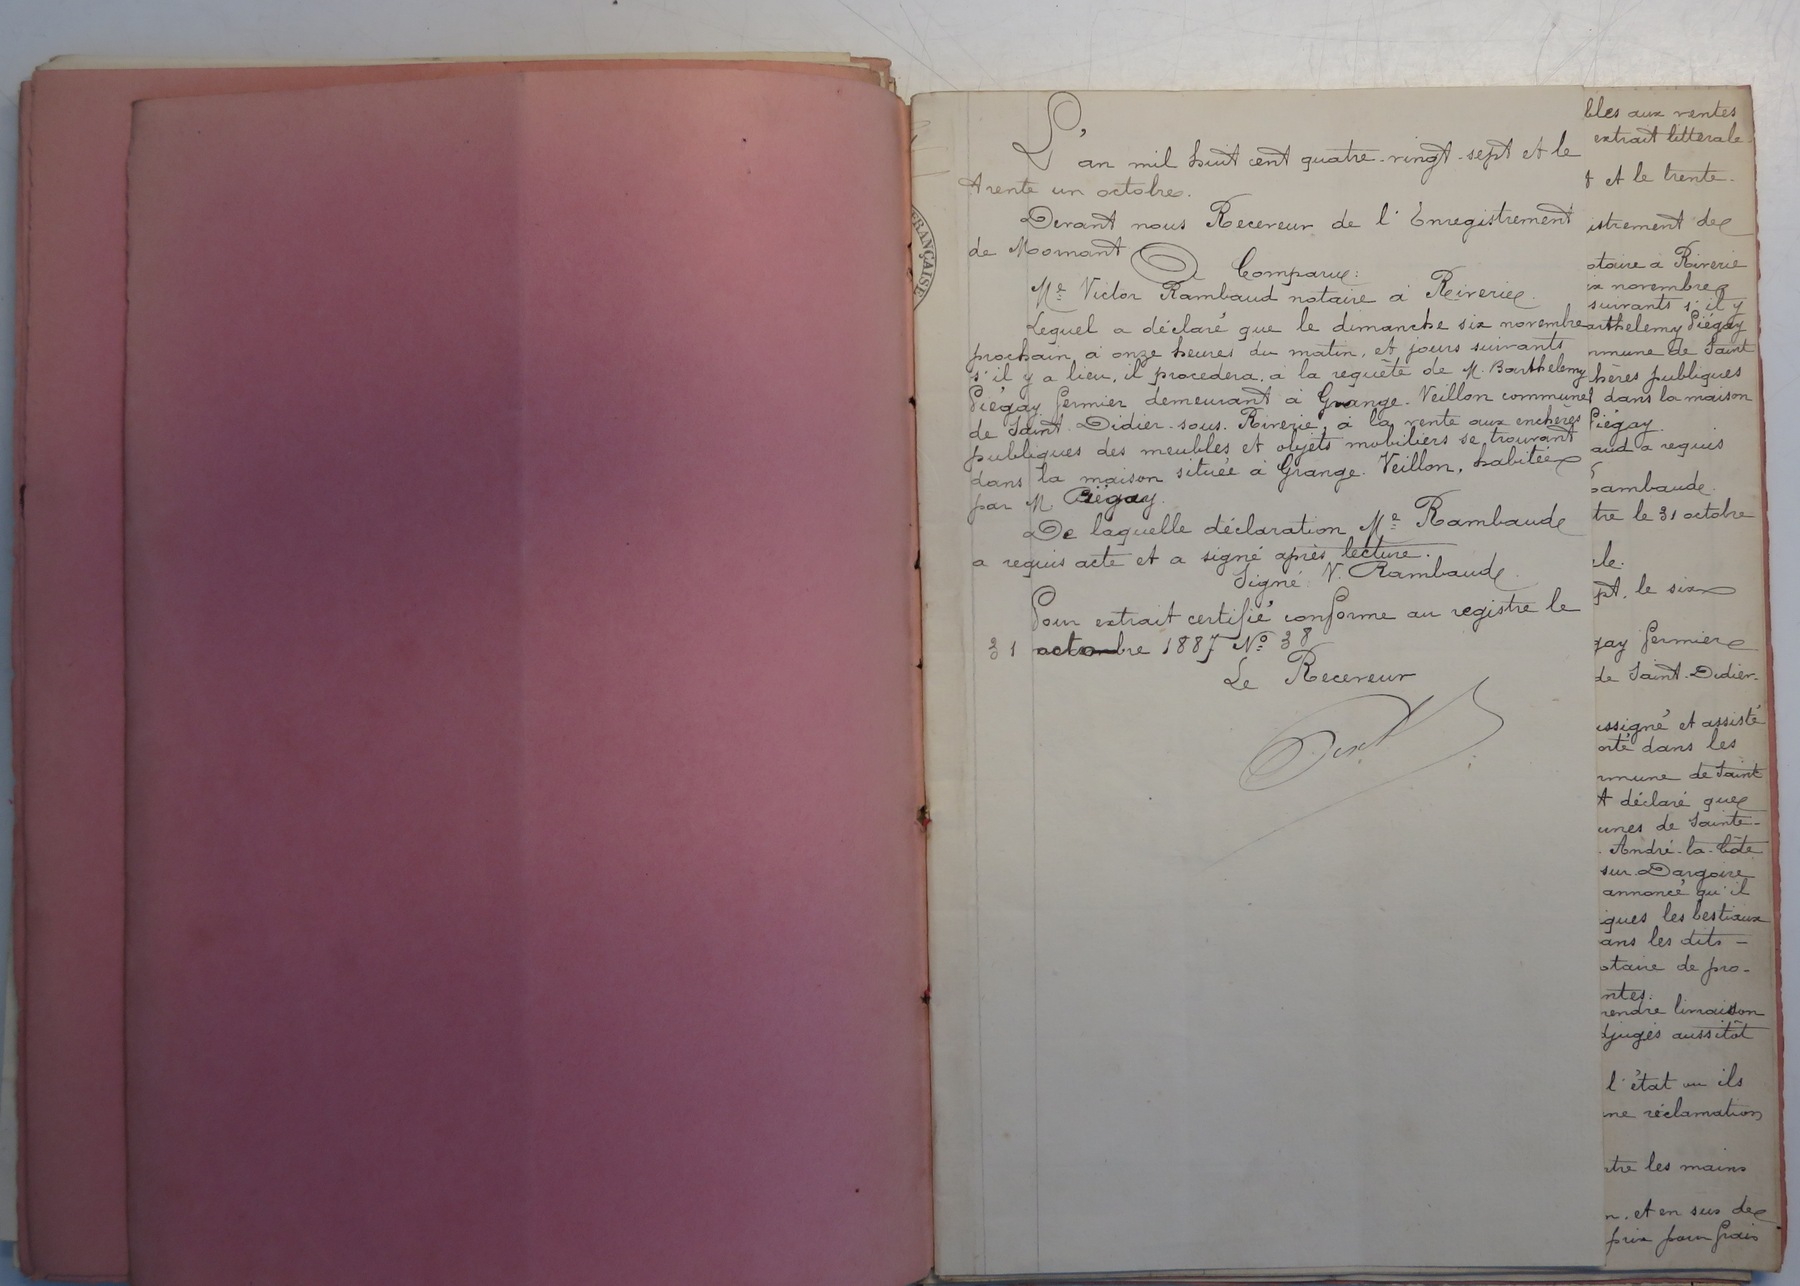 L'an mil huit cent quatre-vingt-sept et le
trente un octobre.
Devant nous Receveur de l'Enregistrement
de Mornant
A Comparu:
Me Victor Rambaud notaire à Riverie.
Lequel a déclaré que le dimanche six novembre
prochain, à onze heures du matin, et jours suivants
s'il y a lieu, il procedera, à la requête de M. Barthelemy
Piégay fermier demeurant à Grange-Veillon commune
de Saint-Didier-sous-Riverie, à la vente aux enchères
publiques des meubles et objets mobiliers se trouvant
dans la maison située à Grange-Veillon, habitée
par M Piégay.
De laquelle déclaration Me Rambaud
a requis acte et a signé après lecture.
Signé: V. Rambaud
Pour extrait certifié conforme au registre le
31 octobre 1887 No 38
Le Receveur
FRANÇAISE
bles aux ventes
extrait littérale
et le trente-
istrement de
otaire à Riverie
ix novembre
suivants s'il y
arthelemy Piégay
mmune de Saint
hères publiques
dans la maison
Piégay.
aud a requis
Rambaud.
tre le 31 octobre
le.
pt, le six
gay fermier
de Saint-Didier-
ussigné et assisté
orté dans les
mmune de Saint
t déclaré que
unes de Sainte-
André-la-Côte
sur-Dargoire
annoncé qu'il
iques les bestiaux
ans les dits -
otaire de pro-
ntes.
rendre livraison
djugés aussitôt
l'état ou ils
ne réclamation
tre les mains
n, et en sus de
prix pour frais